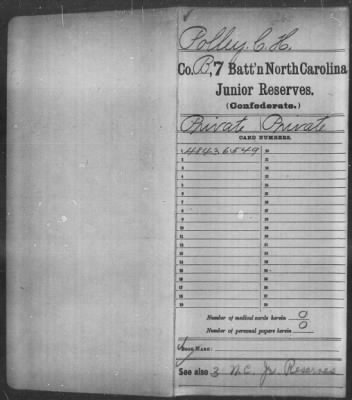 Polley, C. H.
Co. B, 7 Batt'n North Carolina
Junior Reserves.
(Confederate.)
Private Private
CARD NUMBERS.
1 48436549 20
2 21
3 22
4 23
5 24
6 25
7 26
8 27
9 28
10 29
11 30
12 31
13 32
14 33
15 34
16 35
17 36
18 37
19 38
Number of medical cards herein 0
Number of personal papers herein 0
BOOK MARK:
See also 3 N.C. Jr. Reserves